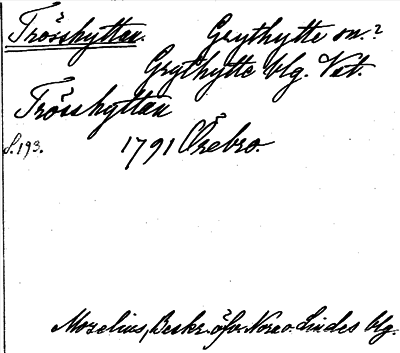 Trösshyttan. Grythytte sn.?
Grythytte blg. Vst.
Trösshyttan
s. 193. 1791 Örebro.
Mozelius, Beskr. öfver Nora o. Lindes blg.